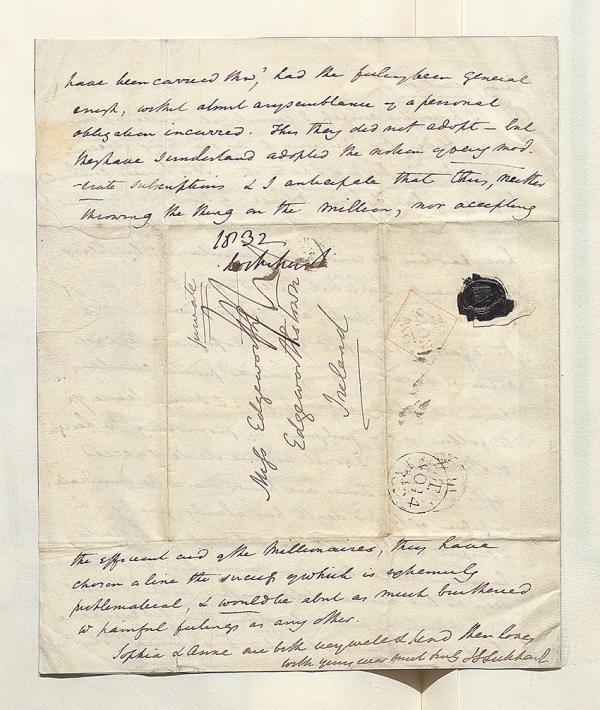 have been carried thro', had the feeling been general
enough, without almost any semblance of a personal
obligation incurred. This they did not adopt — but
they have I understand adopted the notion of very mod
-erate subscriptions & I anticipate that thus, neither
throwing the thing on the million, nor accepting
1832
Lockhart
private
Miss Edgeworth
Edgeworthstown
Ireland
NO 14
the efficient aid of the Millionaires, they have
chosen a line the success of which is extremely
problematical, & would be almst as much burthened
w painful feelings as any other.
Sophia & Anne are both very well & send their loves
with yours most truly JGLockhart